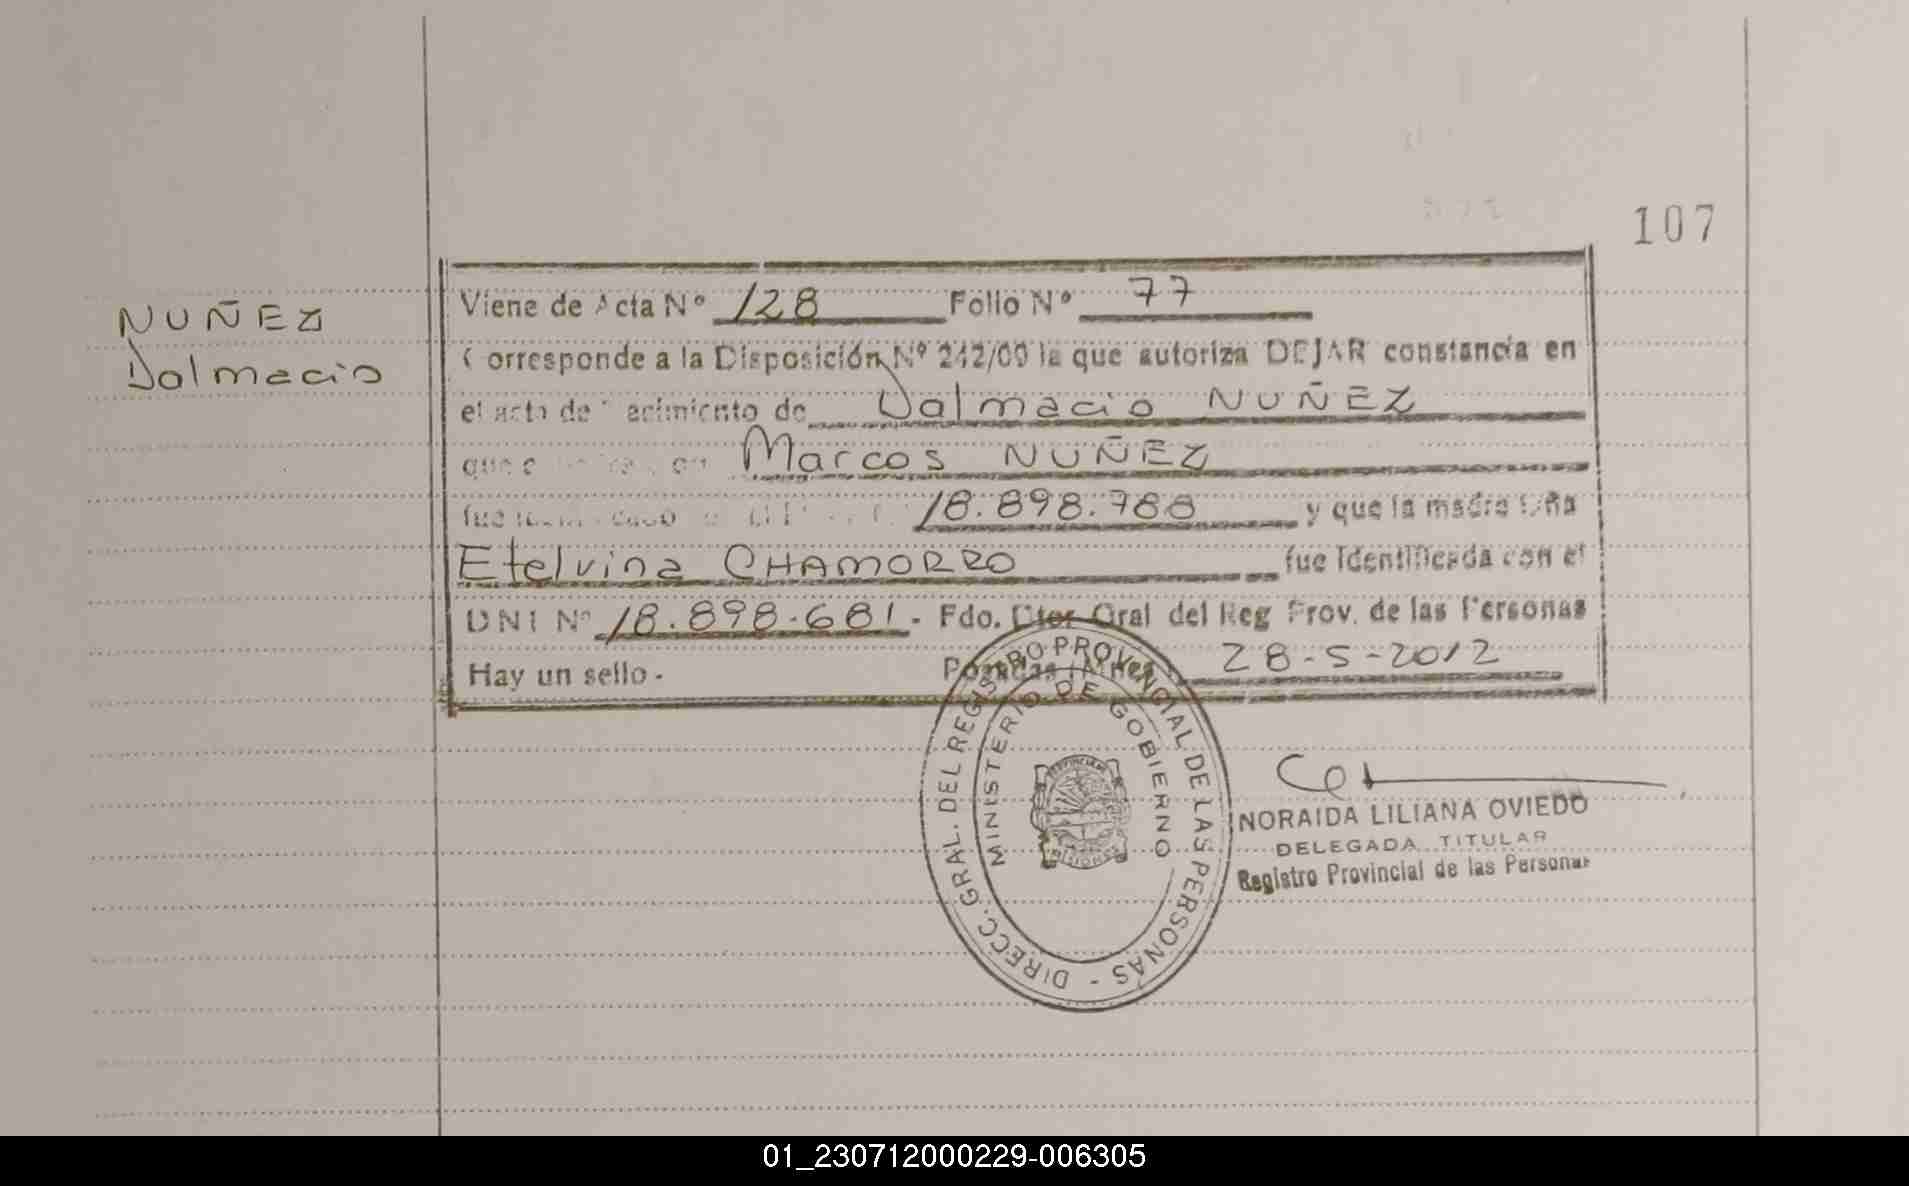 107
NUÑEZ
Dalmacio
Viene de Acta Nº 128 Folio Nº 77
Corresponde a la Disposición Nº 242/00 la que autoriza DEJAR constancia en
el acta de nacimiento de Dalmacio NUÑEZ
que Marcos NUÑEZ
18.898.788 y que la madre Dña
Etelvina CHAMORRO fue identificada con el
DNI Nº 18.898.681.- Fdo. Dtor Gral del Reg Prov. de las Personas
Hay un sello.- Posadas (Mnes) 28-5-2012
DIRECC. GRAL. DEL REGISTRO PROVINCIAL DE LAS PERSONAS -
MINISTERIO DE GOBIERNO
MISIONES
NORAIDA LILIANA OVIEDO
DELEGADA TITULAR
Registro Provincial de las Personas
01_230712000229-006305